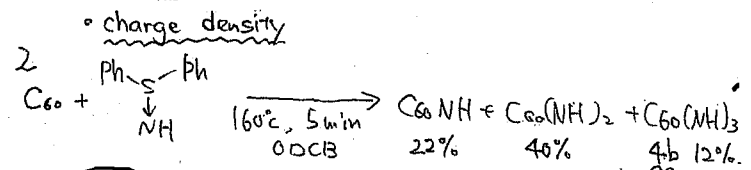 • charge density
2
C60 + Ph S Ph
↓
NH
160°C, 5min
ODCB
C60NH + C60(NH)2 + C60(NH)3
22% 40% 4b 12%.